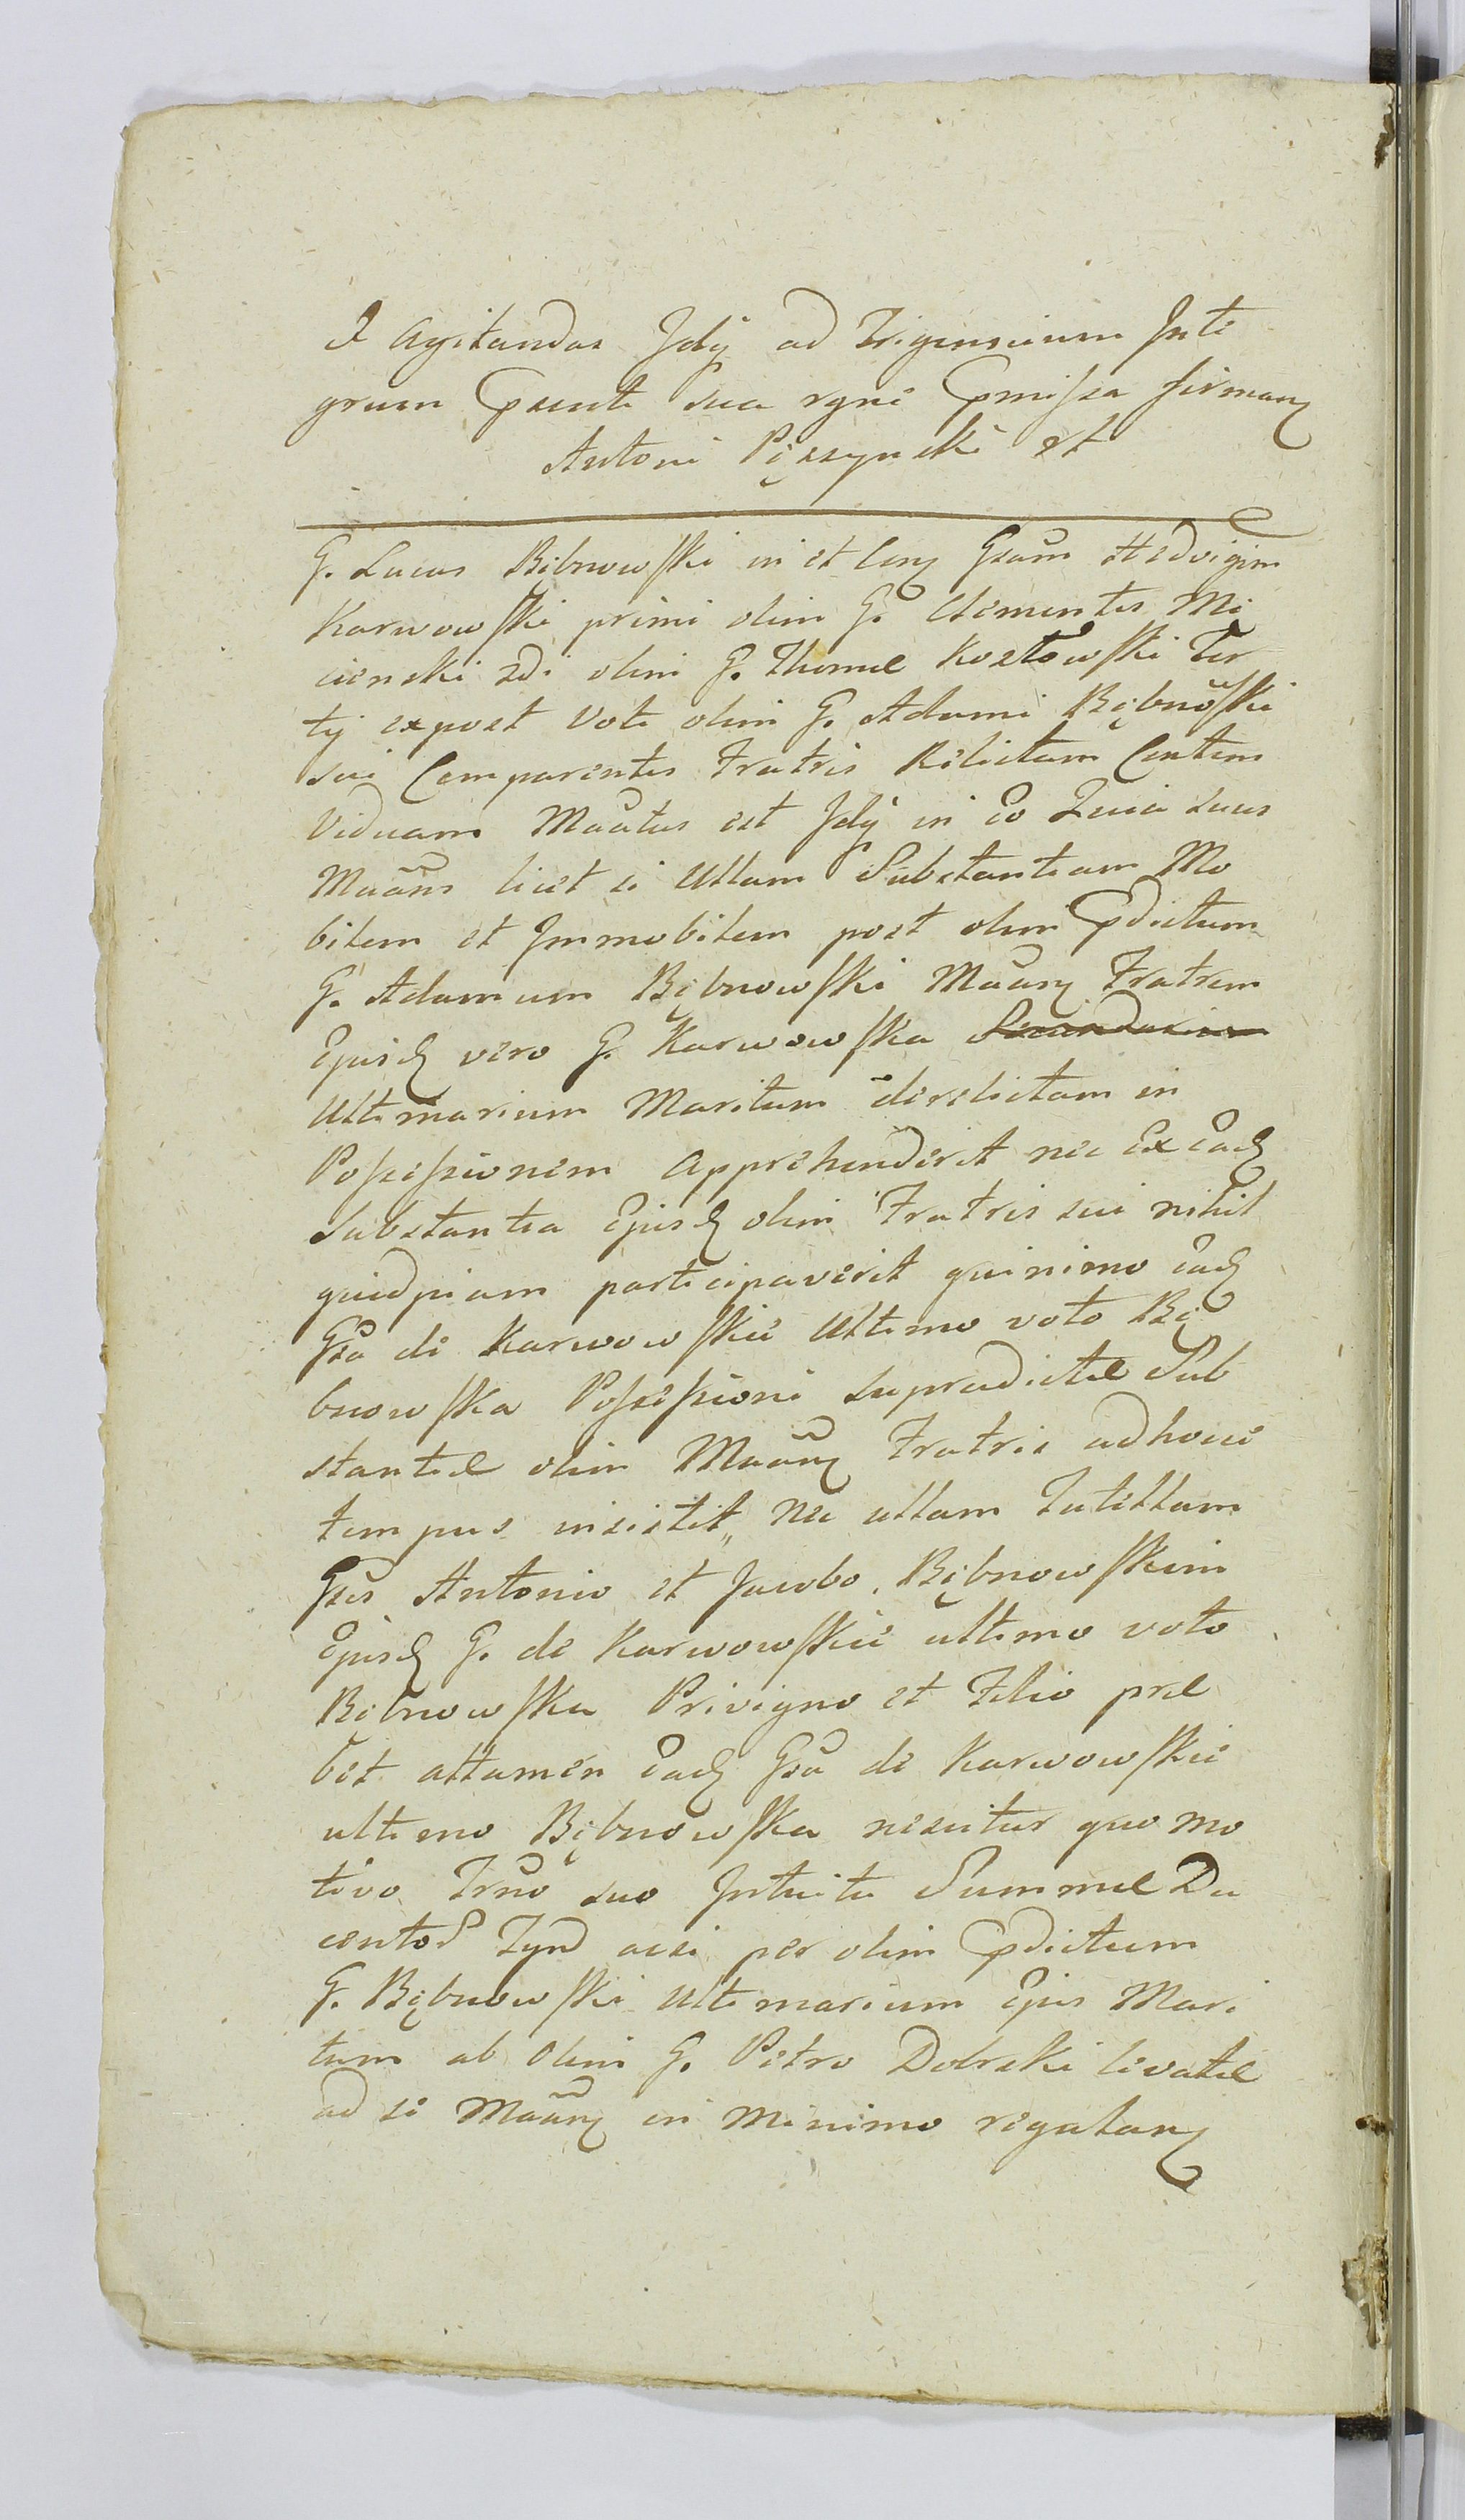 & Agitandas Jdij ad Trigenarium Jnte
grum Gsente sua rgni Gmissa firmans
Antoni Pęszynski et
G. Lucas Bębnowski in et Con Gsam Hedvigim
Karwowski primi olim G. Clementis Mi
cienski 2di olim G. Thomæ Kozłowski Ter
tij expost Voti olim G. Adami Bębnowski
sui Comparentis Fratris Relictam Contem
Viduam Maatus est Jdij in Eo Quia suus
Maans licet si Ullam Substantiam Mo
bilem et Jmmobilem post olim Pdictum
G. Adamum Bębnowski Maans Fratrem
Ejusd vero G. Karwowska Secundarium
Ultimarium Maritum derelictam in
Possessionem Apprehenderit nec Ex Ead
Substantia Ejusd olim Fratris sui nihil
quidpiam participaverit quinimo Ead
Gsa de Karwowskie Ultimo voto Bę
bnowska Possessioni supradictæ Sub
stantiæ olim Maans Fratris adhocce
tempus insistit„ Nec ullam Tutellam
Gsis Antonio et Jacobo Bębnowskim
Ejusd G. de Karwowskie ultimo voto
Bębnowska Privigno et Filio præ
bet attamen Ead Gsa de Karwowskie
ultimo Bębnowska nescitur quo mo
tivo Trno suo Jntuitu Summæ Du
centor Tynf acsi per olim Pdictum
G. Bębnowski Ultimarium Ejus Mari
tum ab Olim G. Petro Dobrski levatæ
ad se Maans in Minimo regulans